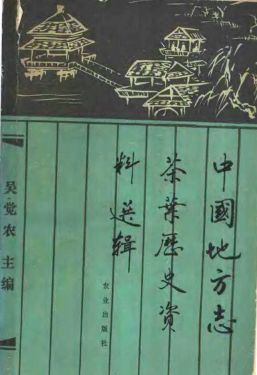 中國地方志
茶葉歷史資
料選輯
农业出版社
吴觉农 主编